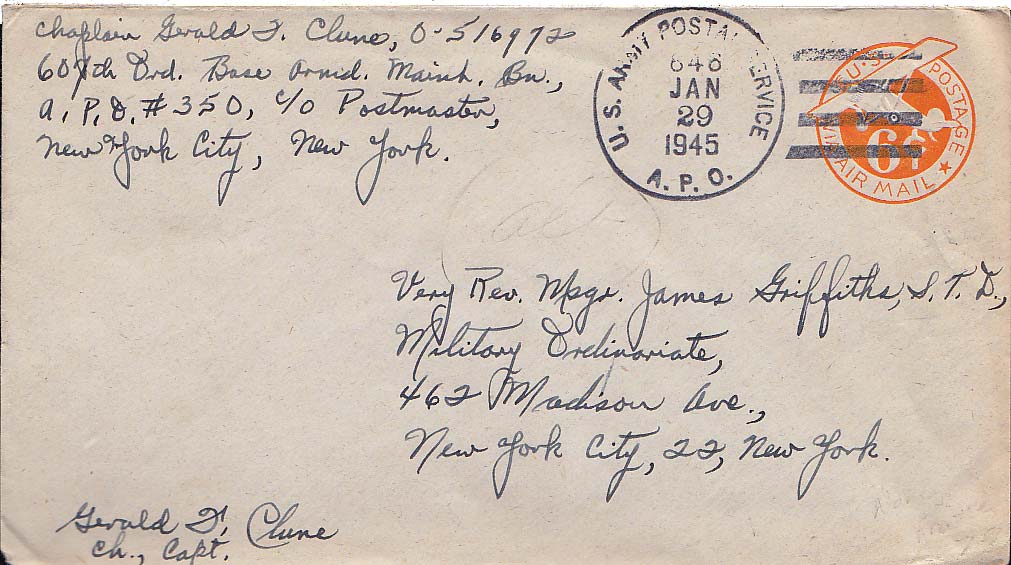 Chaplain Gerald F. Clune, O-516972
607th Ord. Base Armd. Maint. Bn.,
A.P.O. #350, c/o Postmaster,
New York City, New York.
U.S. ARMY POSTAL SERVICE
JAN
29
1945
A.P.O.
U.S. POSTAGE
6¢
VIA AIR MAIL
Very Rev. Msgr. James Griffiths, S.T.D.,
Military Ordinariate,
462 Madison Ave.,
New York City, 22, New York.
Gerald F. Clune
Ch., Capt.